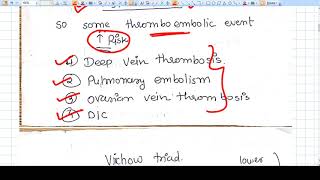 so some thromboembolic event
↑ Risk
1) Deep vein thrombosis.
2) Pulmonary embolism
3) ovarian vein thrombosis
4) DIC
Vichow triad. lower